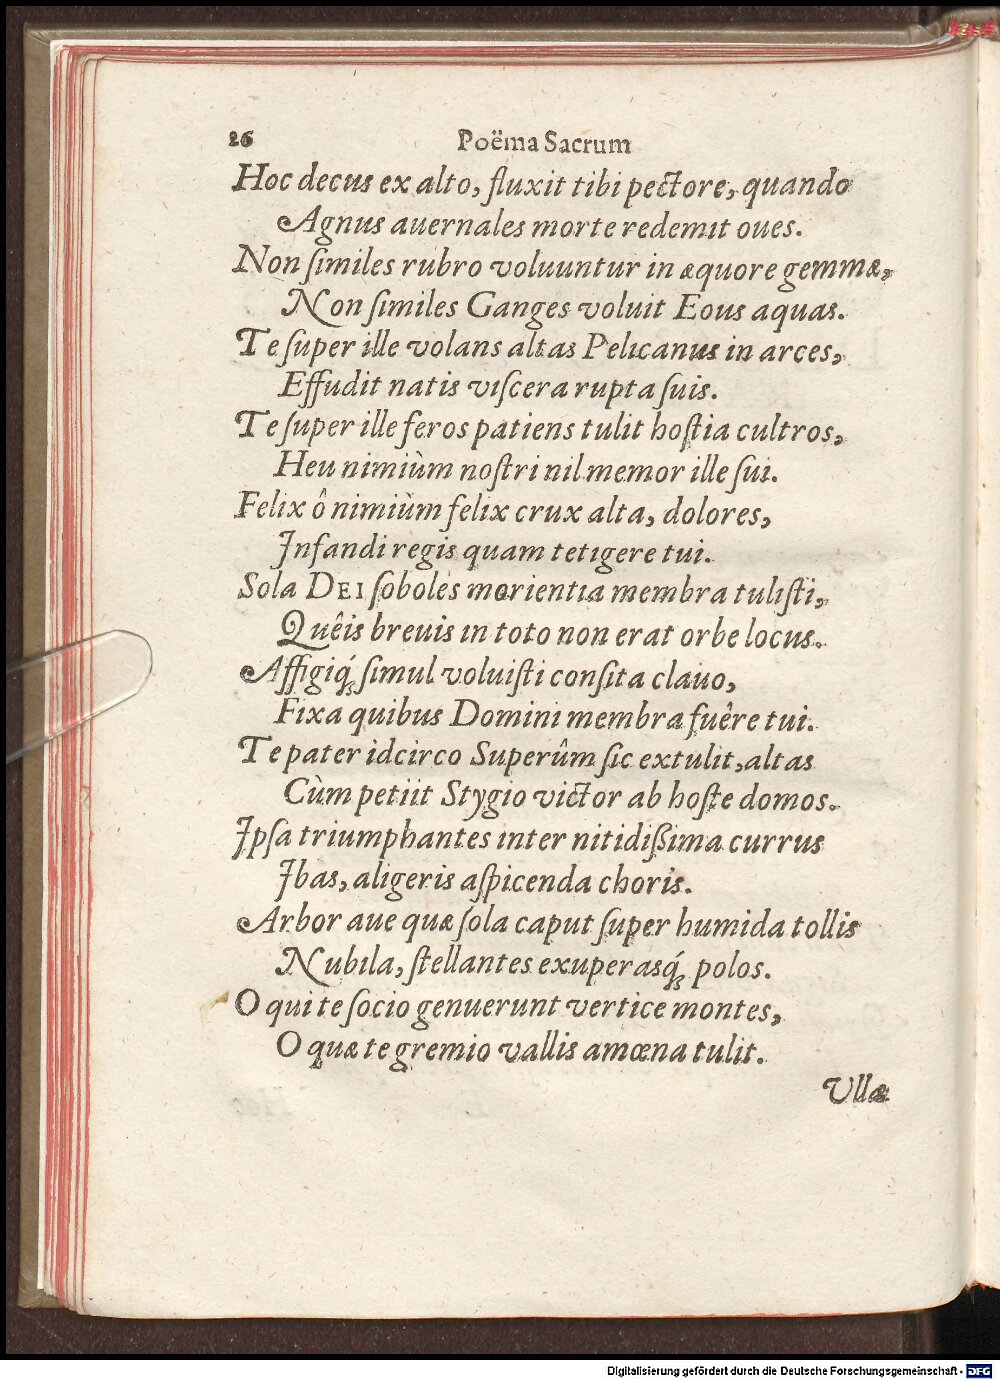 26 Poëma Sacrum
Hoc decus ex alto, fluxit tibi pectore, quando
Agnus auernales morte redemit oues.
Non ſimiles rubro voluuntur in æquore gemmæ,
Non ſimiles Ganges voluit Eous aquas.
Te ſuper ille volans altas Pelicanus in arces,
Effudit natis viſcera rupta ſuis.
Te ſuper ille feros patiens tulit hoſtia cultros,
Heu nimiùm noſtri nil memor ille ſui.
Felix ô nimiùm felix crux alta, dolores,
Infandi regis quam tetigere tui.
Sola DEI ſoboles morientia membra tuliſti,
Quêis breuis in toto non erat orbe locus.
Affigiq́; ſimul voluiſti conſita clauo,
Fixa quibus Domini membra fuêre tui.
Te pater idcirco Superûm ſic extulit, altas
Cùm petiit Stygio victor ab hoſte domos.
Ipſa triumphantes inter nitidißima currus
Ibas, aligeris aſpicenda choris.
Arbor aue quæ ſola caput ſuper humida tollis
Nubila, ſtellantes exuperasq́; polos.
O qui te ſocio genuerunt vertice montes,
O quæ te gremio vallis amœna tulit.
Vllæ
Digitalisierung gefördert durch die Deutsche Forschungsgemeinschaft - DFG